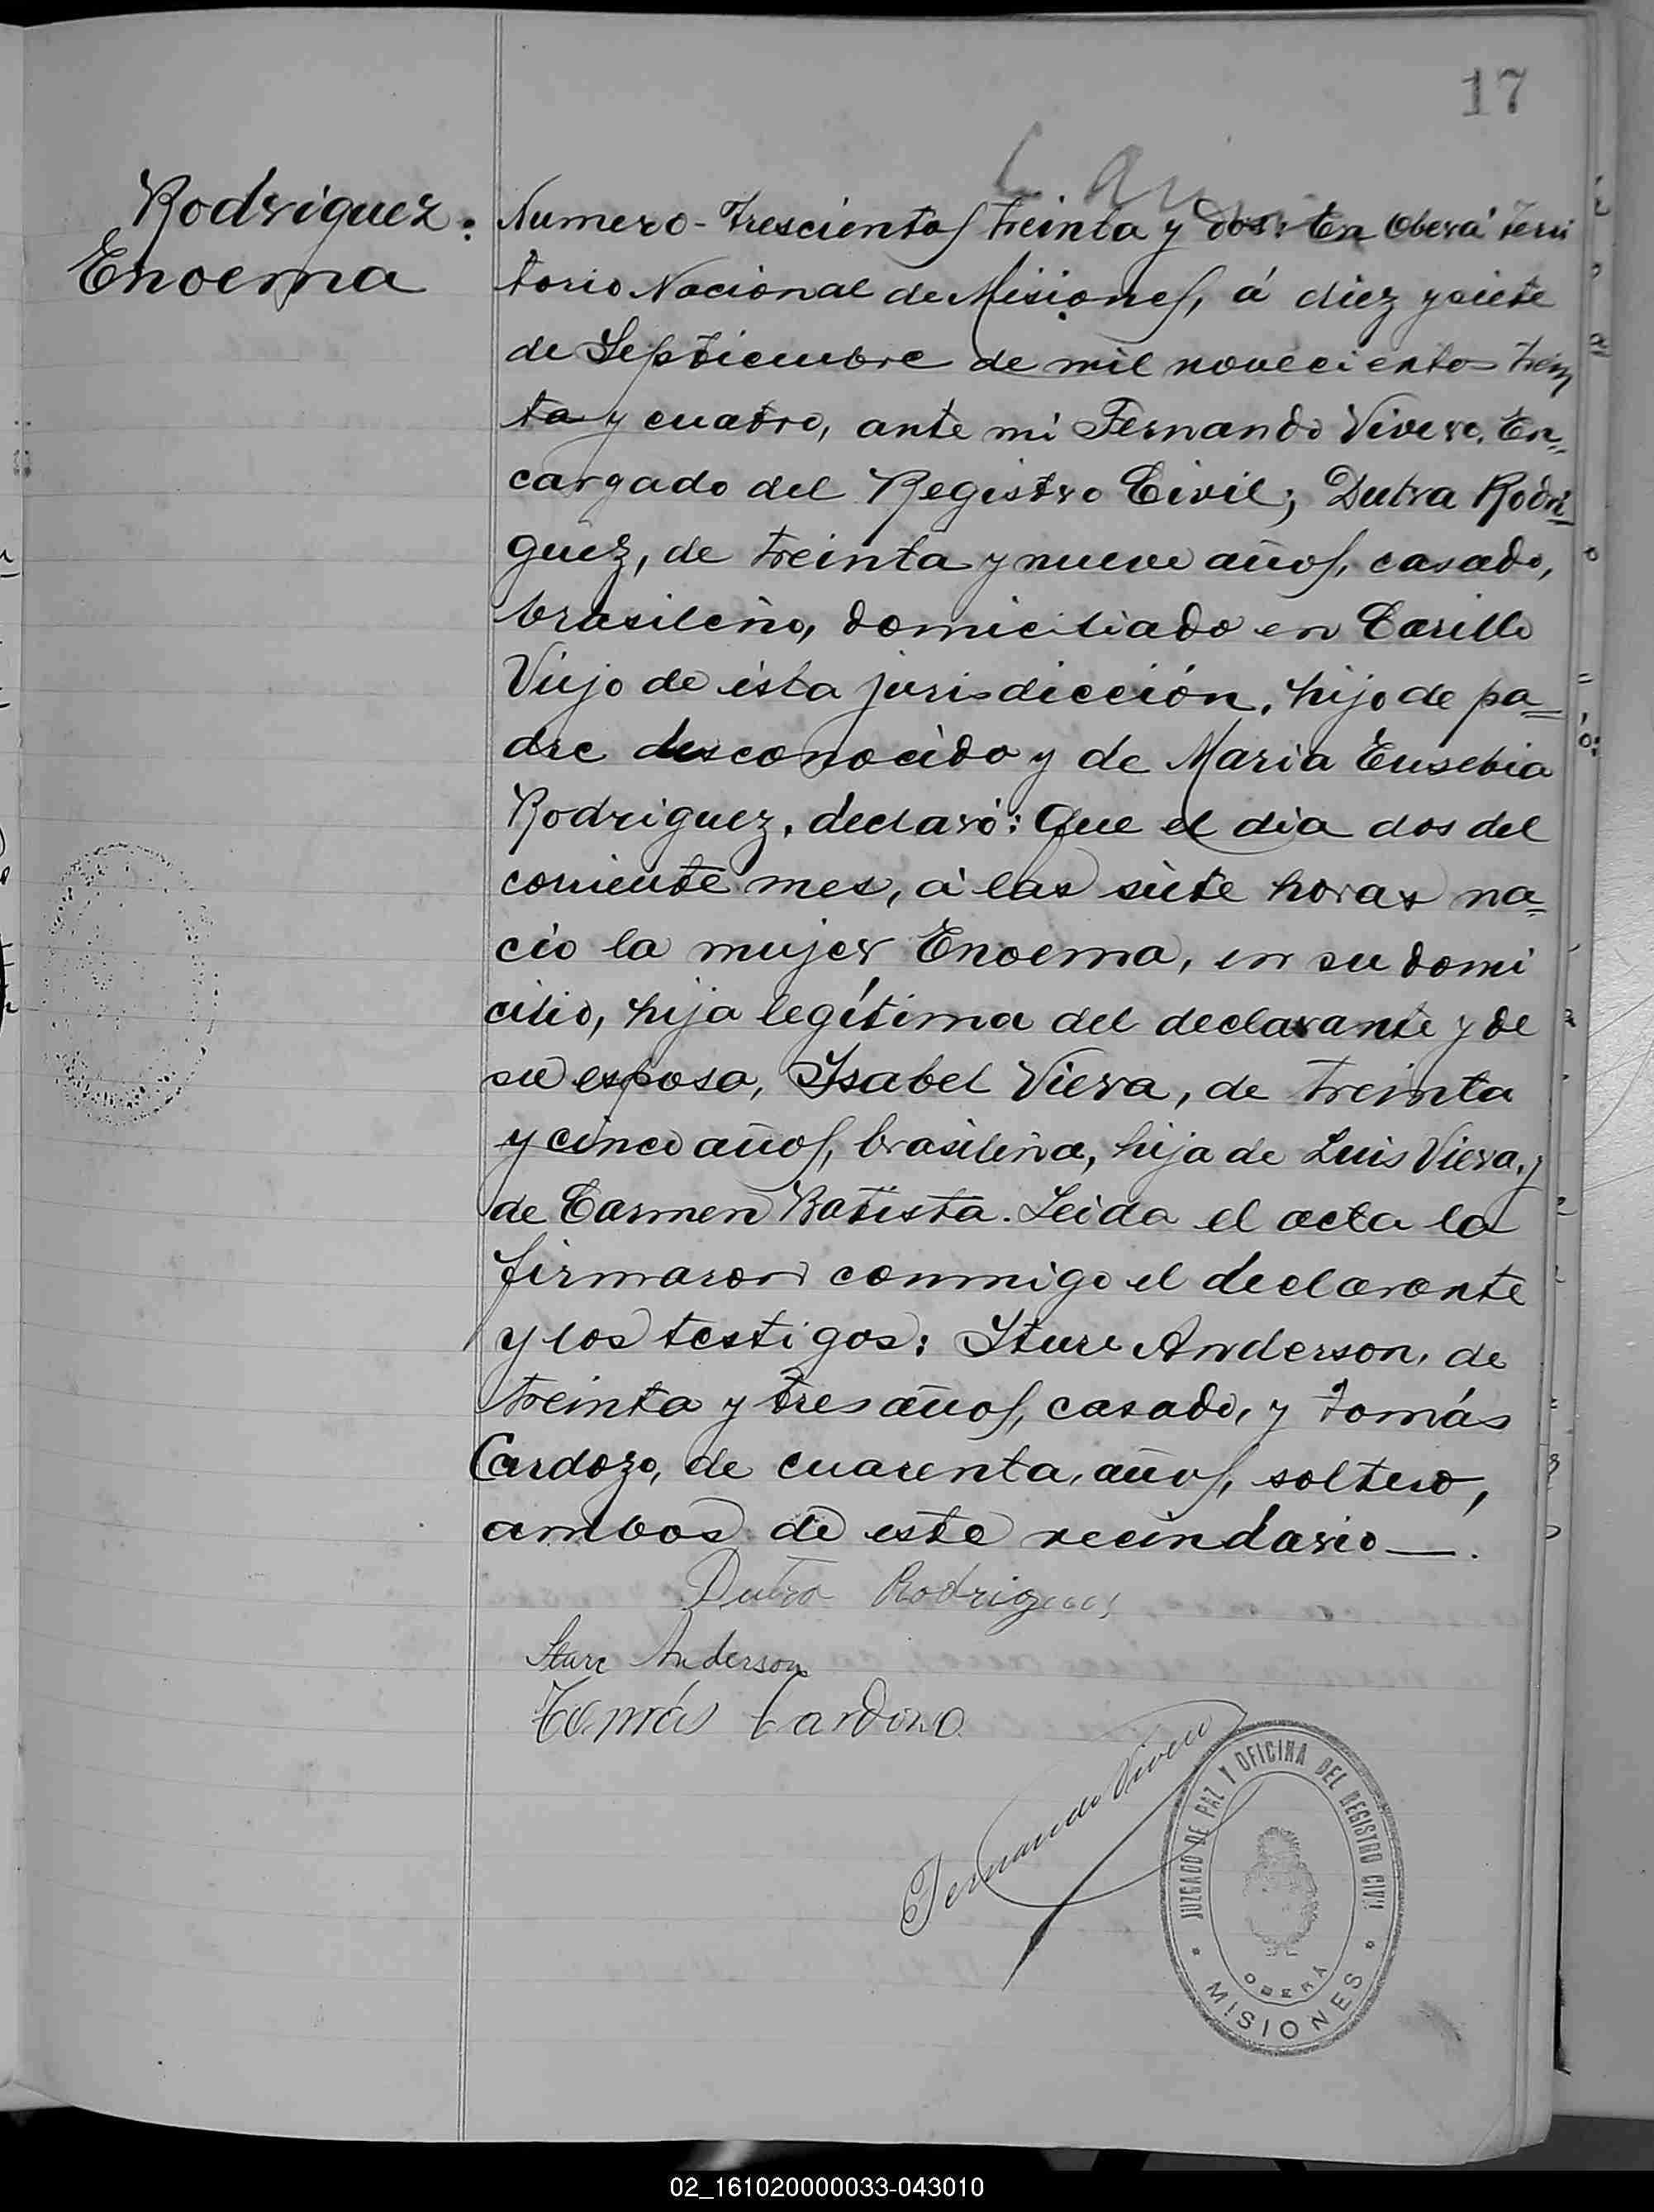 17
Rodriguez:
Enoema
Numero-Trescientos treinta y dos: En Oberá Terri
torio Nacional de Misiones, á diez y siete
de Septiembre de mil novecientos trein
ta y cuatro, ante mi Fernando Vivero, En=
cargado del Registro Civil; Dutra Rodri=
guez, de treinta y nueve años, casado,
brasileño, domiciliado en Carillo
Viejo de ésta jurisdicción, hijo de pa=
dre desconocido y de Maria Eusebia
Rodriguez, declaró: Que el dia dos del
corriente mes, á las siete horas na=
cio la mujer Enoema, en su domi
cilio, hija legítima del declarante y de
su esposa, Isabel Viera, de treinta
y cinco años, brasileña, hija de Luis Viera, y
de Carmen Batista. Leida el acta la
firmaron conmigo el declarante
y los testigos: Sture Anderson, de
treinta y tres años, casado, y Tomás
Cardozo, de cuarenta, años, soltero,
ambos de este vecindario—.
Dutra Rodrigues
Sture Anderson
Tomás Cardozo
Fernando Vivero
JUZGADO DE PAZ Y OFICINA DEL REGISTRO CIVIL
OBERÁ
* MISIONES *
02_161020000033-043010